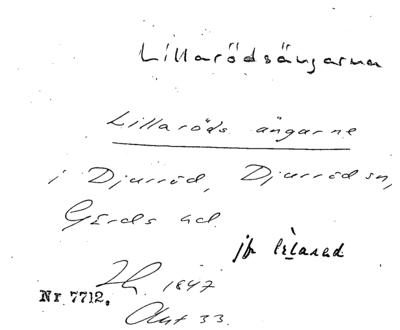 Lillarödsängarna
Lillaröds ängarne
i Djurröd, Djurröds sn,
Gärds hd.
jfr
1847
Nr 7712.
Akt 33.